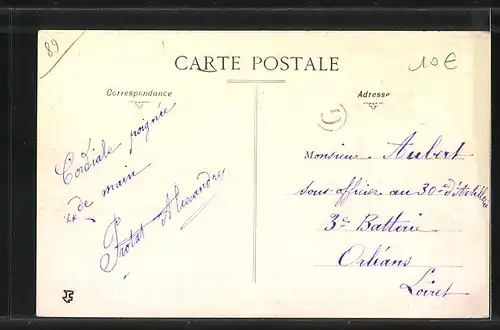 89
CARTE POSTALE
10€
Correspondance
Adresse
Cordiale poignée
de main
Alexandre
Monsieur Aubert
sous-officier au 30e d'Artillerie
3e Batterie
Orléans
Loiret